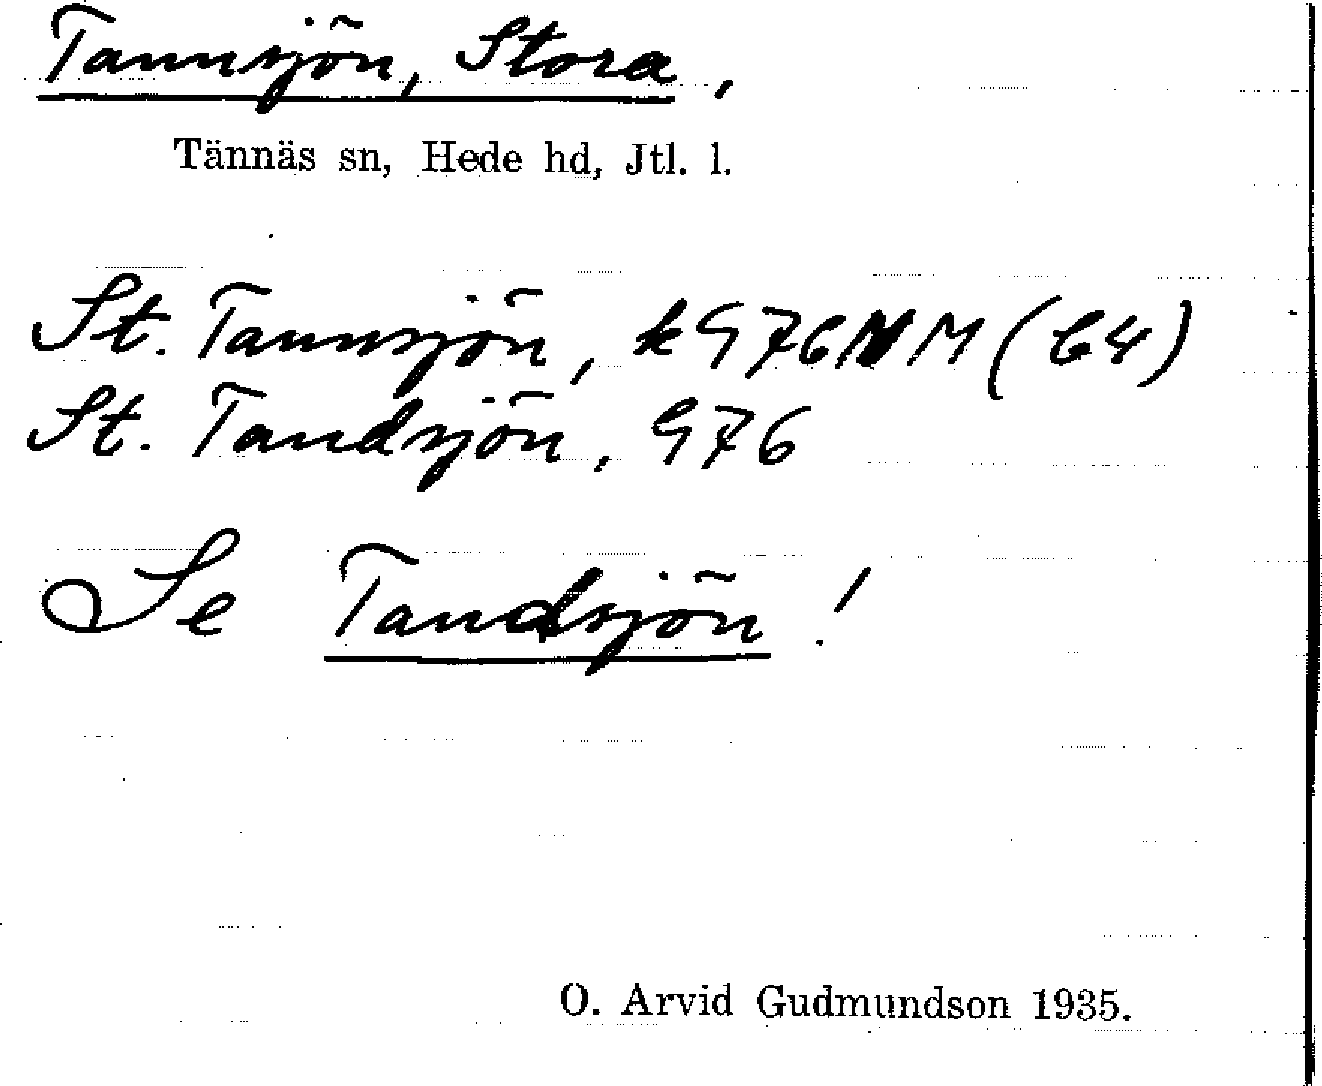 Tannsjön, Stora,
Tännäs sn, Hede hd, Jtl. l.
St. Tannsjön, k 976 M (C4)
St. Tandsjön, 976
Se Tandsjön!
O. Arvid Gudmundson 1935.